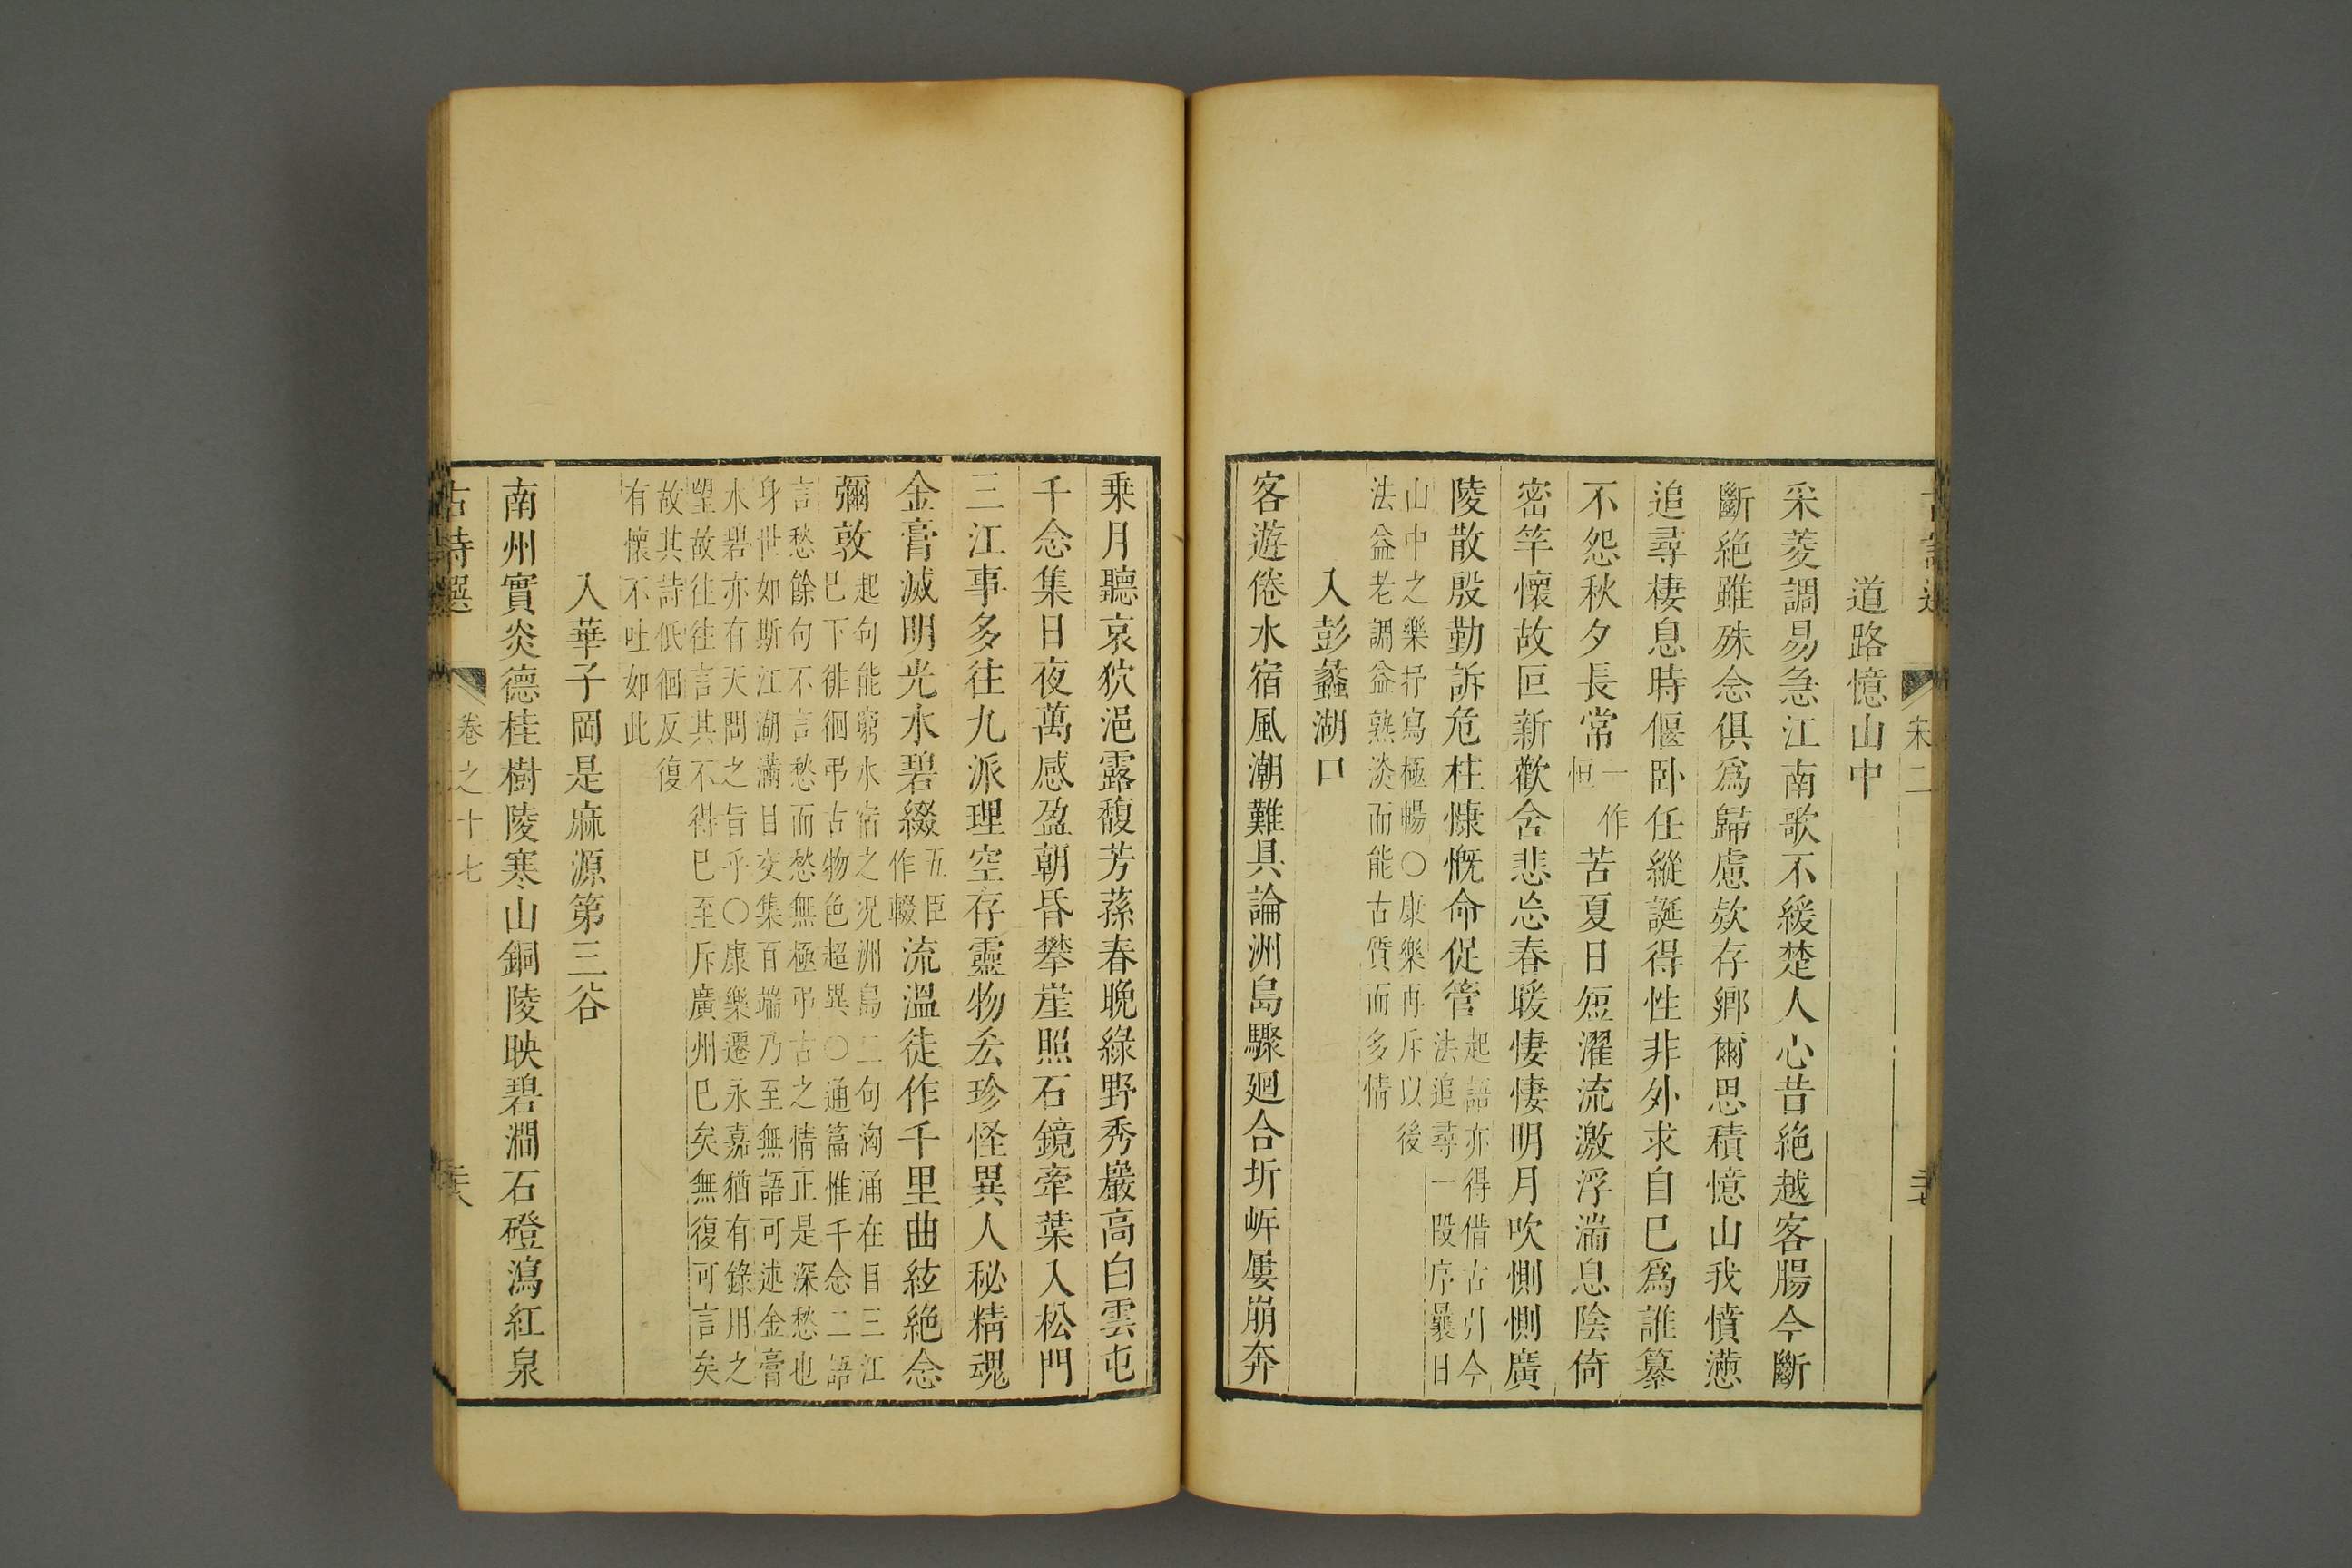 宋二
道路憶山中
采菱調易急江南歌不緩楚人心昔絶越客腸今斷
斷絶雖殊念俱爲歸慮欵存鄉爾思積憶山我憤懣
追尋棲息時偃卧任縱誕得性非外求自已爲誰纂
不怨秋夕長常一作恒苦夏日短濯流激浮湍息陰倚
密竿懷故叵新歡含悲忘春暖悽悽明月吹惻惻廣
陵散殷勤訴危柱慷慨命促管起語亦得借古引今法追尋一段序曩日
山中之樂抒寫極暢○康樂再斥以後
法益老調益熟淡而能古質而多情
入彭蠡湖口
客遊倦水宿風潮難具論洲島驟廻合圻岸屢崩奔
乘月聽哀狖浥露馥芳蓀春晚綠野秀巖高白雲屯
千念集日夜萬感盈朝昏攀崖照石鏡牽葉入松門
三江事多往九派理空存靈物𠫤珍怪異人秘精魂
金膏滅明光水碧綴五臣作輟流溫徒作千里曲絃絶念
彌敦起句能窮水宿之况洲島二句洶涌在目三江巳下徘徊弔古物色超異○通篇惟千念二語
言愁餘句不言愁而愁無極弔古之情正是深愁也
身世如斯江湖滿目交集百端乃至無語可述金膏
水碧亦有天問之旨乎○康樂遷永嘉猶有錄用之
望故往往言其不得巳至斥廣州巳矣無復可言矣
故其詩低徊反復
有懷不吐如此
入華子岡是麻源第三谷
南州實炎德桂樹陵寒山銅陵映碧澗石磴瀉紅泉
古詩選
卷之十七